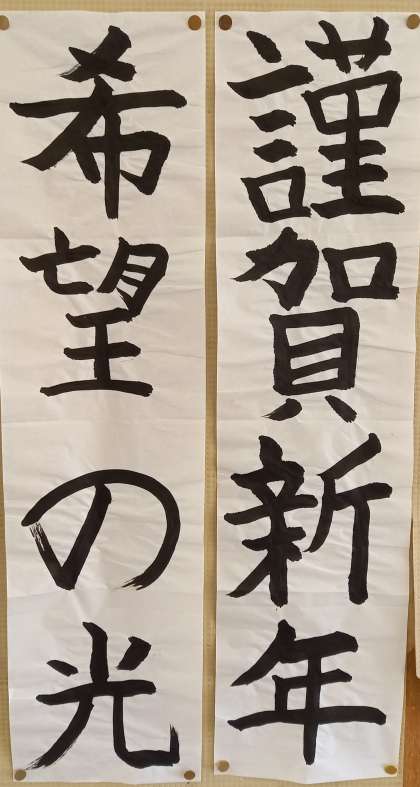 謹賀新年
希望の光